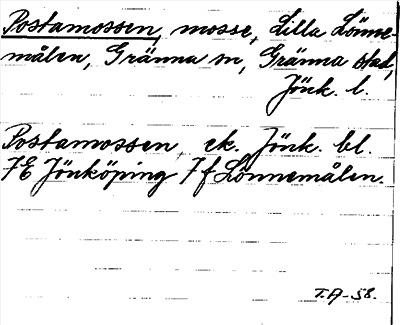 Postamossen, mosse, Lilla Lönne-
målen, Gränna sn, Gränna stad,
Jönk. l.
Postamossen, ek. Jönk. bl.
7E Jönköping 7f Lönnemålen.
T.A-58.